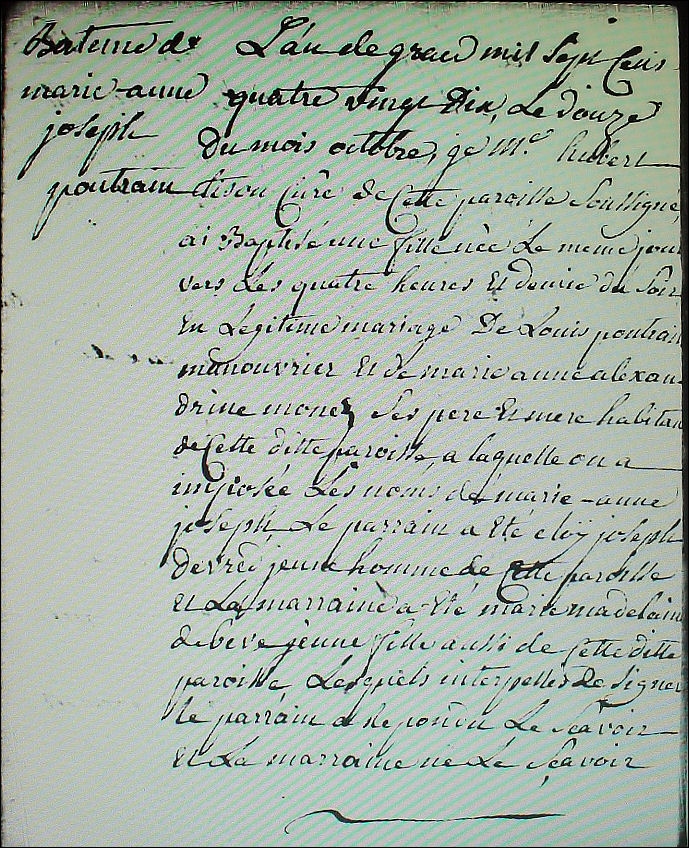 Bateme de
marie-anne
joseph
poutrain
L'an de grace mil sept Cens
quatre vingt Dix, Le douze
Du mois octobre, je M.e hubert
Curé de Cette paroisse Soussigné
ai Baptisé une fille née Le meme jour
vers Les quatre heures Et demie du Soir
En Legitime mariage De Louis poutrain
manouvrier Et de marie anne alexan-
drine monez Ses pere Et mere habitan
de Cette ditte paroisse, a laquelle on a
imposée Les noms de marie-anne
joseph, Le parrain a Eté eloÿ joseph
jeune homme de Cette paroisse
Et La marraine a Eté marie madelaine
debeve jeune fille aussi de Cette ditte
paroisse, Lesquels interpellés De Signer
le parrain a repondu Le Scavoir
Et La marraine ne Le Sçavoir